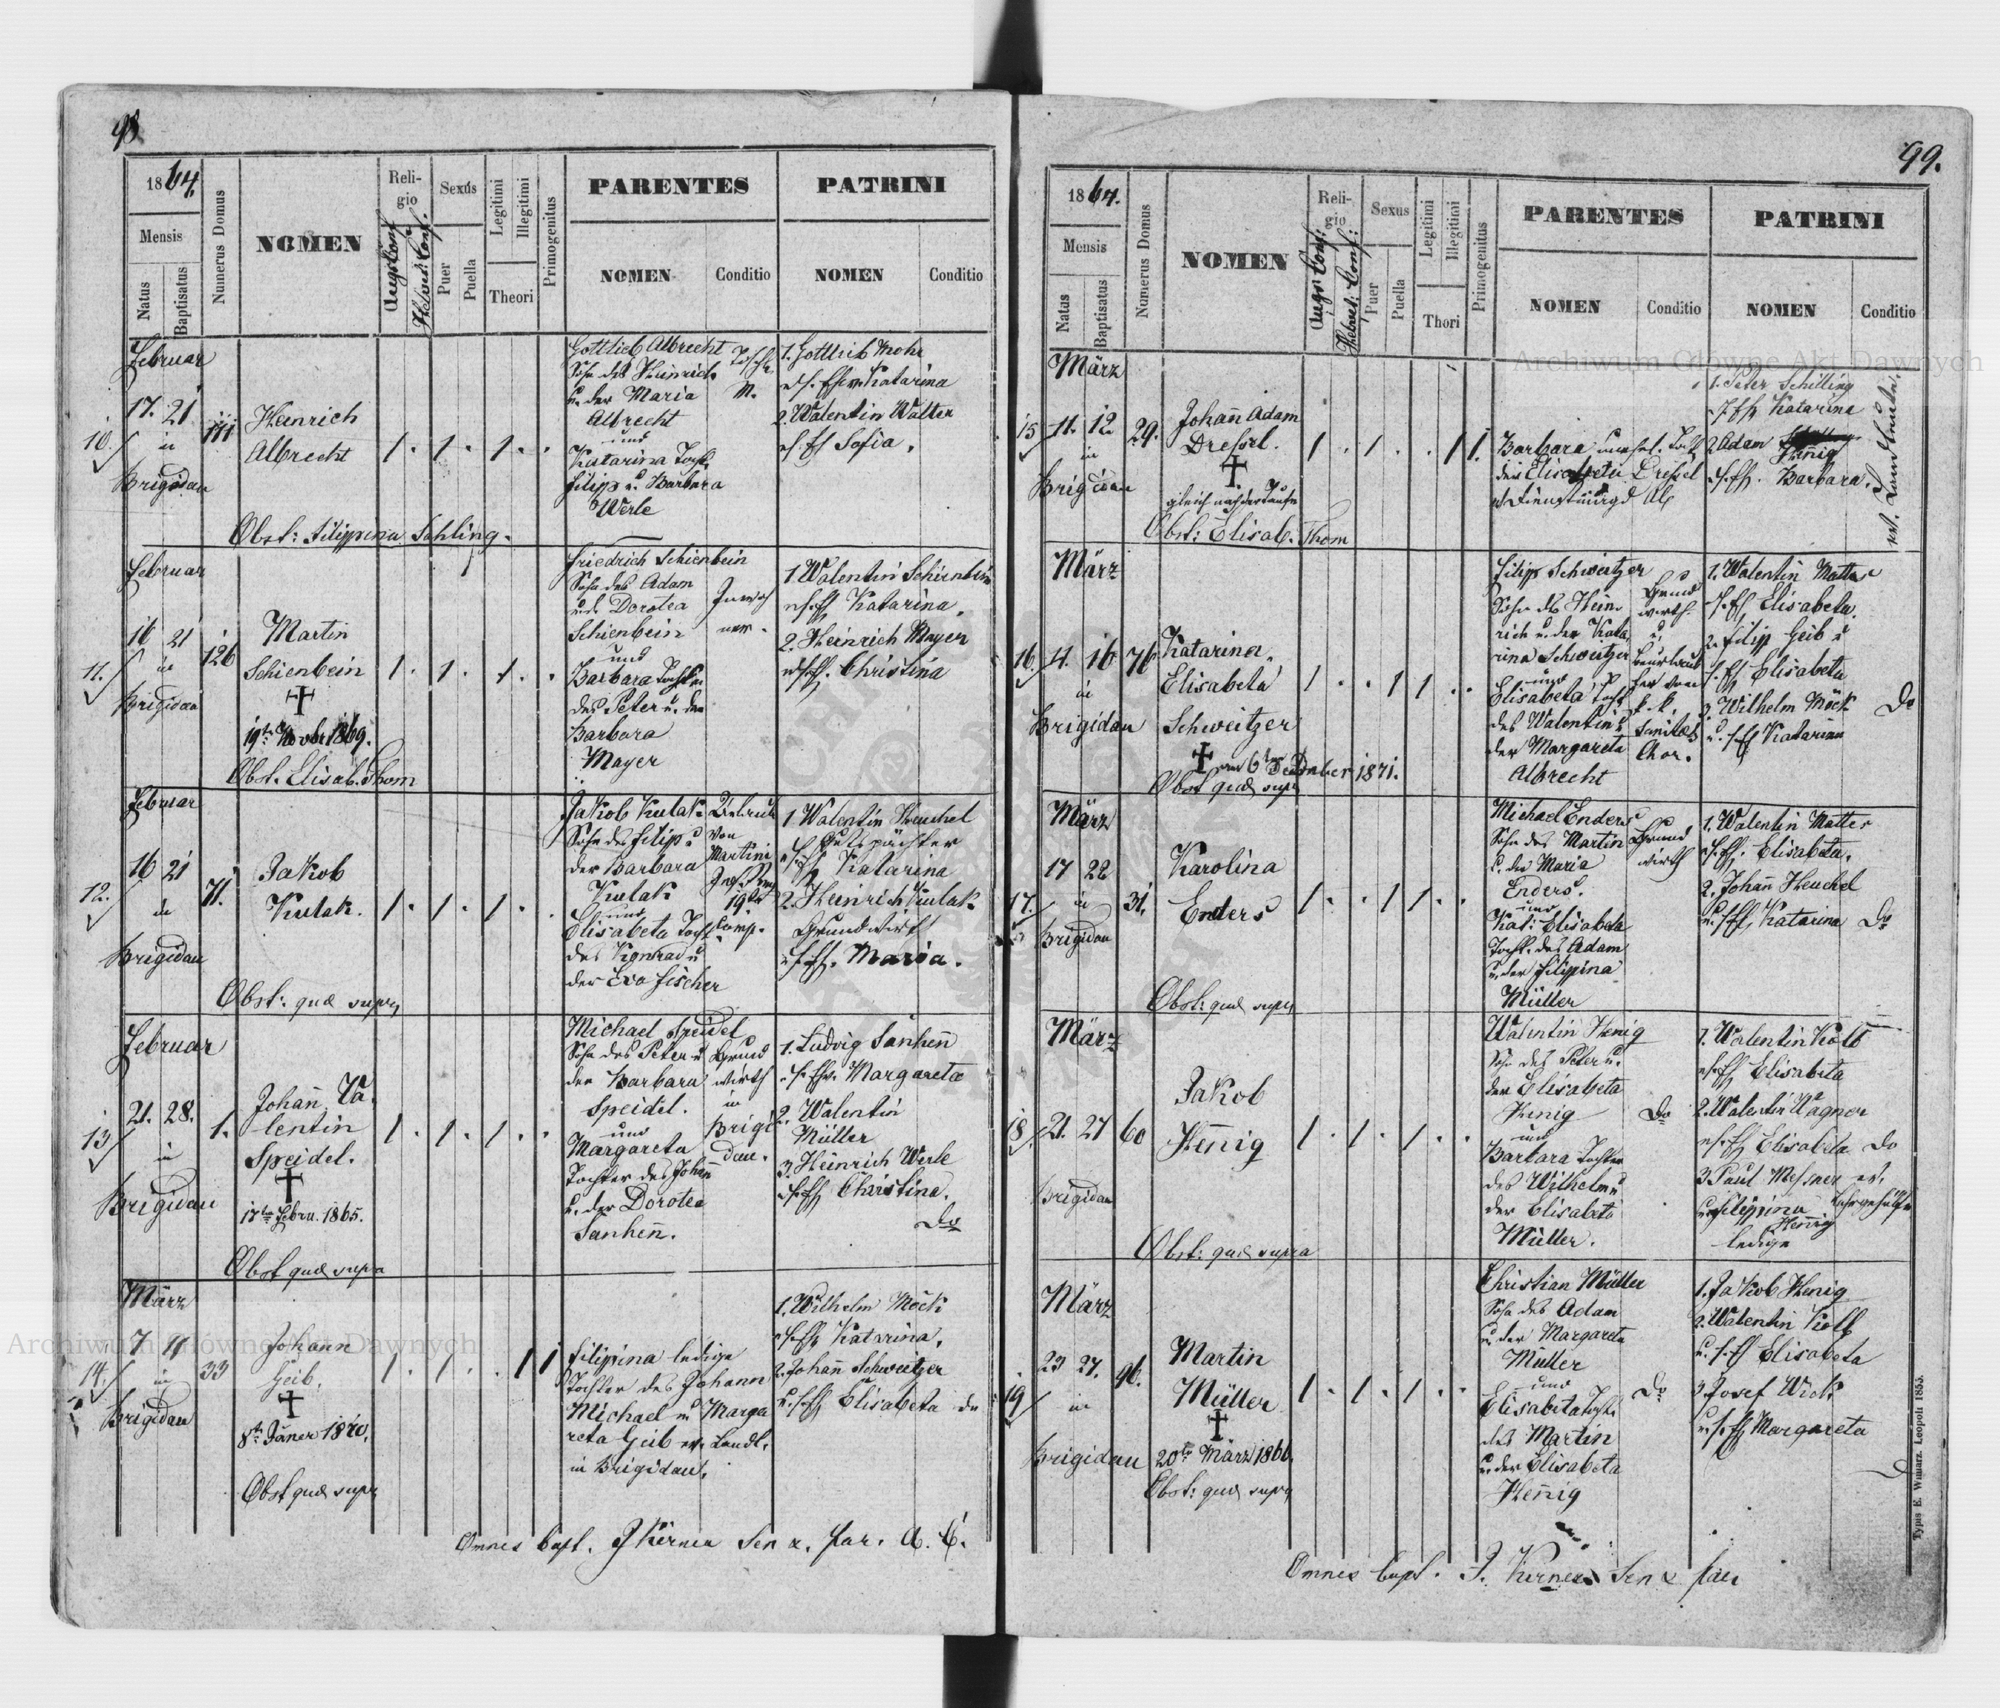 98
1864.
Mensis
Natus
Baptisatus
Numerus Domus
NOMEN
Religio
Augs Conf.
Helvet: Conf.
Sexus
Puer
Puella
Legitimi
Illegitimi
Theori
Primogenitus
PARENTES
NOMEN
Conditio
PATRINI
NOMEN
Conditio
Februar
10.
17. 21
in
Brigidau
111
Heinrich
Albrecht
1 . 1 . 1 . .
Gottlieb Albrecht
Sohn des Heinrich
u. der Maria
Albrecht
und
Katarina Tocht.
Filipp u. Barbara
Werle
1. Gottlieb Mohr
Katarina
2. Valentin Walter
Sofia.
Obst: Filippina Schling.
Februar
11.
16 21
in
Brigidau
126
Martin
Schienbein
19ten Novbr 1869.
1 . 1 . 1 . .
Friedrich Schienbein
Sohn des Adam
u. d. Dorotea
Schienbein
und
Barbara Tochter
des Peter u. der
Barbara
Mayer
Inwoh
ner.
1. Valentin Schienbein
Katarina.
2. Heinrich Mayer
Christina
Obst. Elisab. Thom
Februar
12.
16 21
in
Brigidau
71.
Jakob
Kulak.
1 . 1 . 1 . .
Jakob Kulak
Sohn des Filip u
der Barbara
Kulak
und
Elisabeta Tocht
des Konrad u
der Eva Fischer
von
Martini
19ten
Comp.
1 Valentin Heuchel
Gutspächter
Katarina
2. Heinrich Kulak
Grundwirt
Maria.
Obst: quae supra
Februar
13
21. 28.
in
Brigidau
1.
Johann Va-
lentin
Speidel.
17ten Febru. 1865.
1 . 1 . 1 . .
Michael Speidel
Sohn des Peter u
der Barbara
Speidel.
und
Margareta
Tochter des Johann
u. der Dorotea
Sanhen̄.
Grund
wirth
in
Brigi
dau.
1. Ludvig Sanhen̄
Margareta
2. Valentin
Müller
3. Heinrich Werle
Christina.
Do
Obst quae supra
März
14.
7 11
in
Brigidau
33
Johann
Geib.
8ten Jäner 1870.
1 . 1 . . 1 1
Filipina ledige
Tochter des Johann
Michael u Marga
reta Geib ev. Landl.
in Brigidau.
1. Wilhelm Möck
Katarina.
2. Johan̄ Schweitzer
Elisabeta do
Obst quae supra
Omnes bapt. J Kerner Sen x. par. A. C.
99.
1864.
Mensis
Natus
Baptisatus
Numerus Domus
NOMEN
Religio
Augs Conf:
Helvet: Conf:
Sexus
Puer
Puella
Legitimi
Illegitimi
Thori
Primogenitus
PARENTES
NOMEN
Conditio
PATRINI
NOMEN
Conditio
März
15
11. 12.
in
Brigidau
29.
Johan̄ Adam
Dressel.
gleich nach der Taufe
1 . 1 . . 1 1.
Barbara unehel. Tocht
der Elisabeta Dressel
1. Peter Schilling
Katarina
2 Adam
Henig
Barbara.
ev. Landleute.
Obst: Elisab. Thom
März
16.
11. 16
in
Brigidau
76
Katarina
Elisabeta
Schweitzer
am 6ten December 1871.
1 . . 1 1 . .
Filipp Schweitzer
Sohn des Hein-
rich u. der Kata-
rina Schweitzer
und
Elisabeta Tocht
des Valentin u
der Margareta
Albrecht
Grund
wirth
u.
Beurlaub
ter vom
k. k.
Sanitäts
Chor.
1. Valentin Matter
Elisabeta.
2. Filip Geib u
Elisabeta
3 Wilhelm Möck
Katarina
Do
Obst quae supra
März
17.
17 22
in
Brigidau
31.
Karolina
Enders
1 . . 1 1 . .
Michael Enders
Sohn des Martin
u. der Maria
Enders.
und
Kat: Elisabeta
Tocht. des Adam
u. der Filippina
Müller
Grund
wirth
1. Valentin Matter
Elisabeta.
2. Johan̄ Heuchel
Katarina Do
Obst: quae supra
März
18
21. 27
Brigidau
60
Jakob
Hen̄ig
1 . 1 . 1 . .
Valentin Henig
Sohn des Peter u.
der Elisabeta
Henig
und
Barbara Tochter
des Wilhelm u
der Elisabeta
Müller.
Do
1. Valentin Kolb
Elisabeta
2. Valentin Wagner
Elisabeta Do
3 Paul Messner ev.
Lehrgehülfe
u. Filippina
Hen̄ig
ledige
Obst: quae supra
März
19
23 27.
in
Brigidau
96.
Martin
Müller
20ten März 1866.
1 . 1 . 1 . .
Christian Müller
Sohn des Adam
u. der Margareta
Müller
und
Elisabeta Tocht.
des Martin
u. der Elisabeta
Hen̄ig
Do
1. Jakob Henig
2. Valentin Kolb
Elisabeta
3. Josef Wick
Margareta
Obst: quae supra
Omnes bapt. J. Kerner Sen x par
Typis E. Winiarz. Leopoli 1855.
Archiwum Główne Akt Dawnych
Archiwum Główne Akt Dawnych